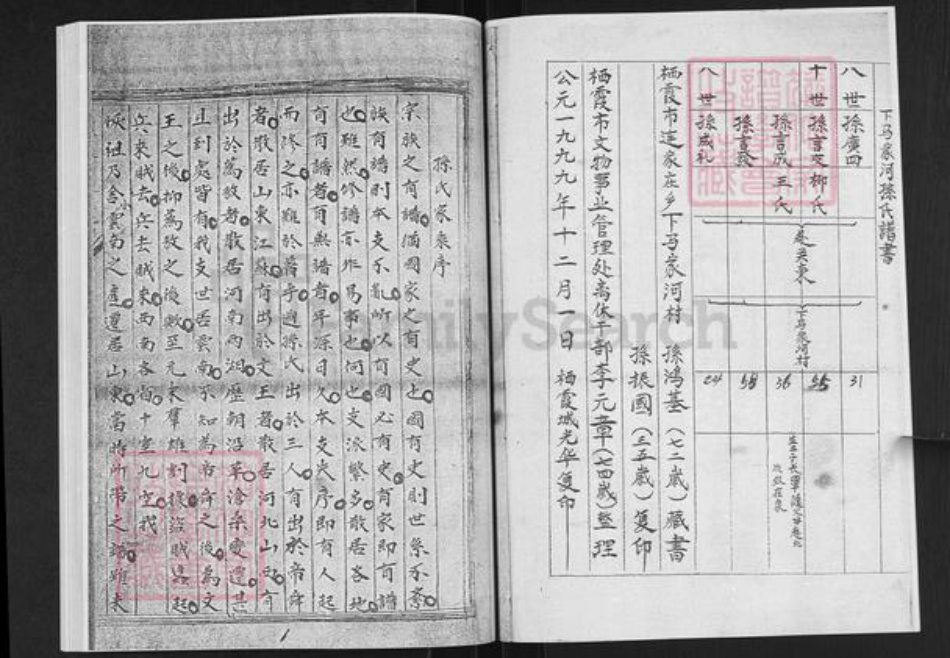 下马家河孫氏譜書
八世 孫廣四
十世 孫言交 柳氏
孫言成 王氏
孫言發
八世 孫成礼
走关東
下马家河村
31
55
36
58
24
栖霞市连家庄乡下马家河村 孫鴻基（七二歲）藏書
孫振國（三五歲）复印
栖霞市文物事业管理处离休干部李元章（七四歲）整理
公元一九九九年十二月一日 栖霞城光华复印
孫氏家乘序
宗族之有譜猶國家之有史也國有史則世系不紊
族有譜則本支不亂所以有國必有史有家即有譜
也雖然修譜亦非易事也何也支派繁多散居各地
有有譜者有無譜者年深日久本支失序即有人起
而修之亦難於著手遡孫氏出於三人有出於帝舜
者散居山東江蘇有出於文王者散居河北山西有
出於蔿敖者散居河南两湖歷朝沿革滄桑变遷甚
且到處皆有我支世居雲南不知為帝舜之後為文
王之後抑蔿敖之後歟至元末羣雄割據盜賊蠭起
兵來賊去兵去賊來西南各省十室九空我
始祖乃舍雲南之遷居山東當時所帶之譜雖未
1
FamilySearch